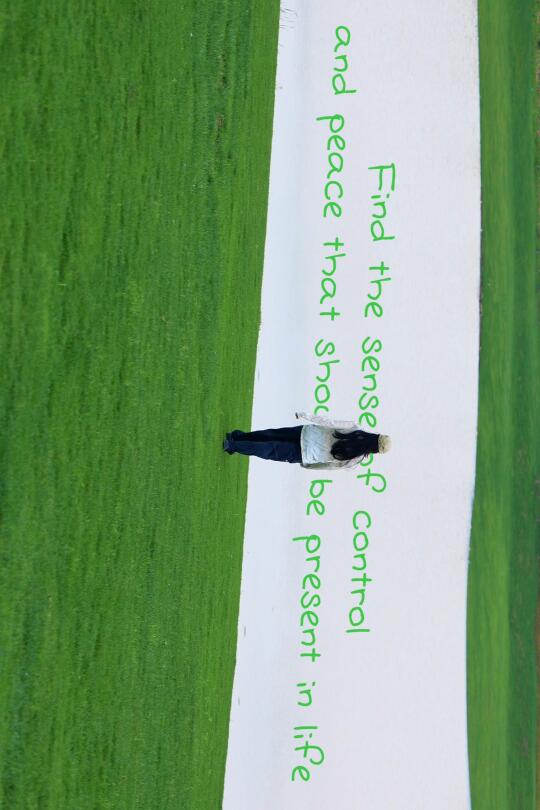 Find the sense of control
and peace that should be present in life